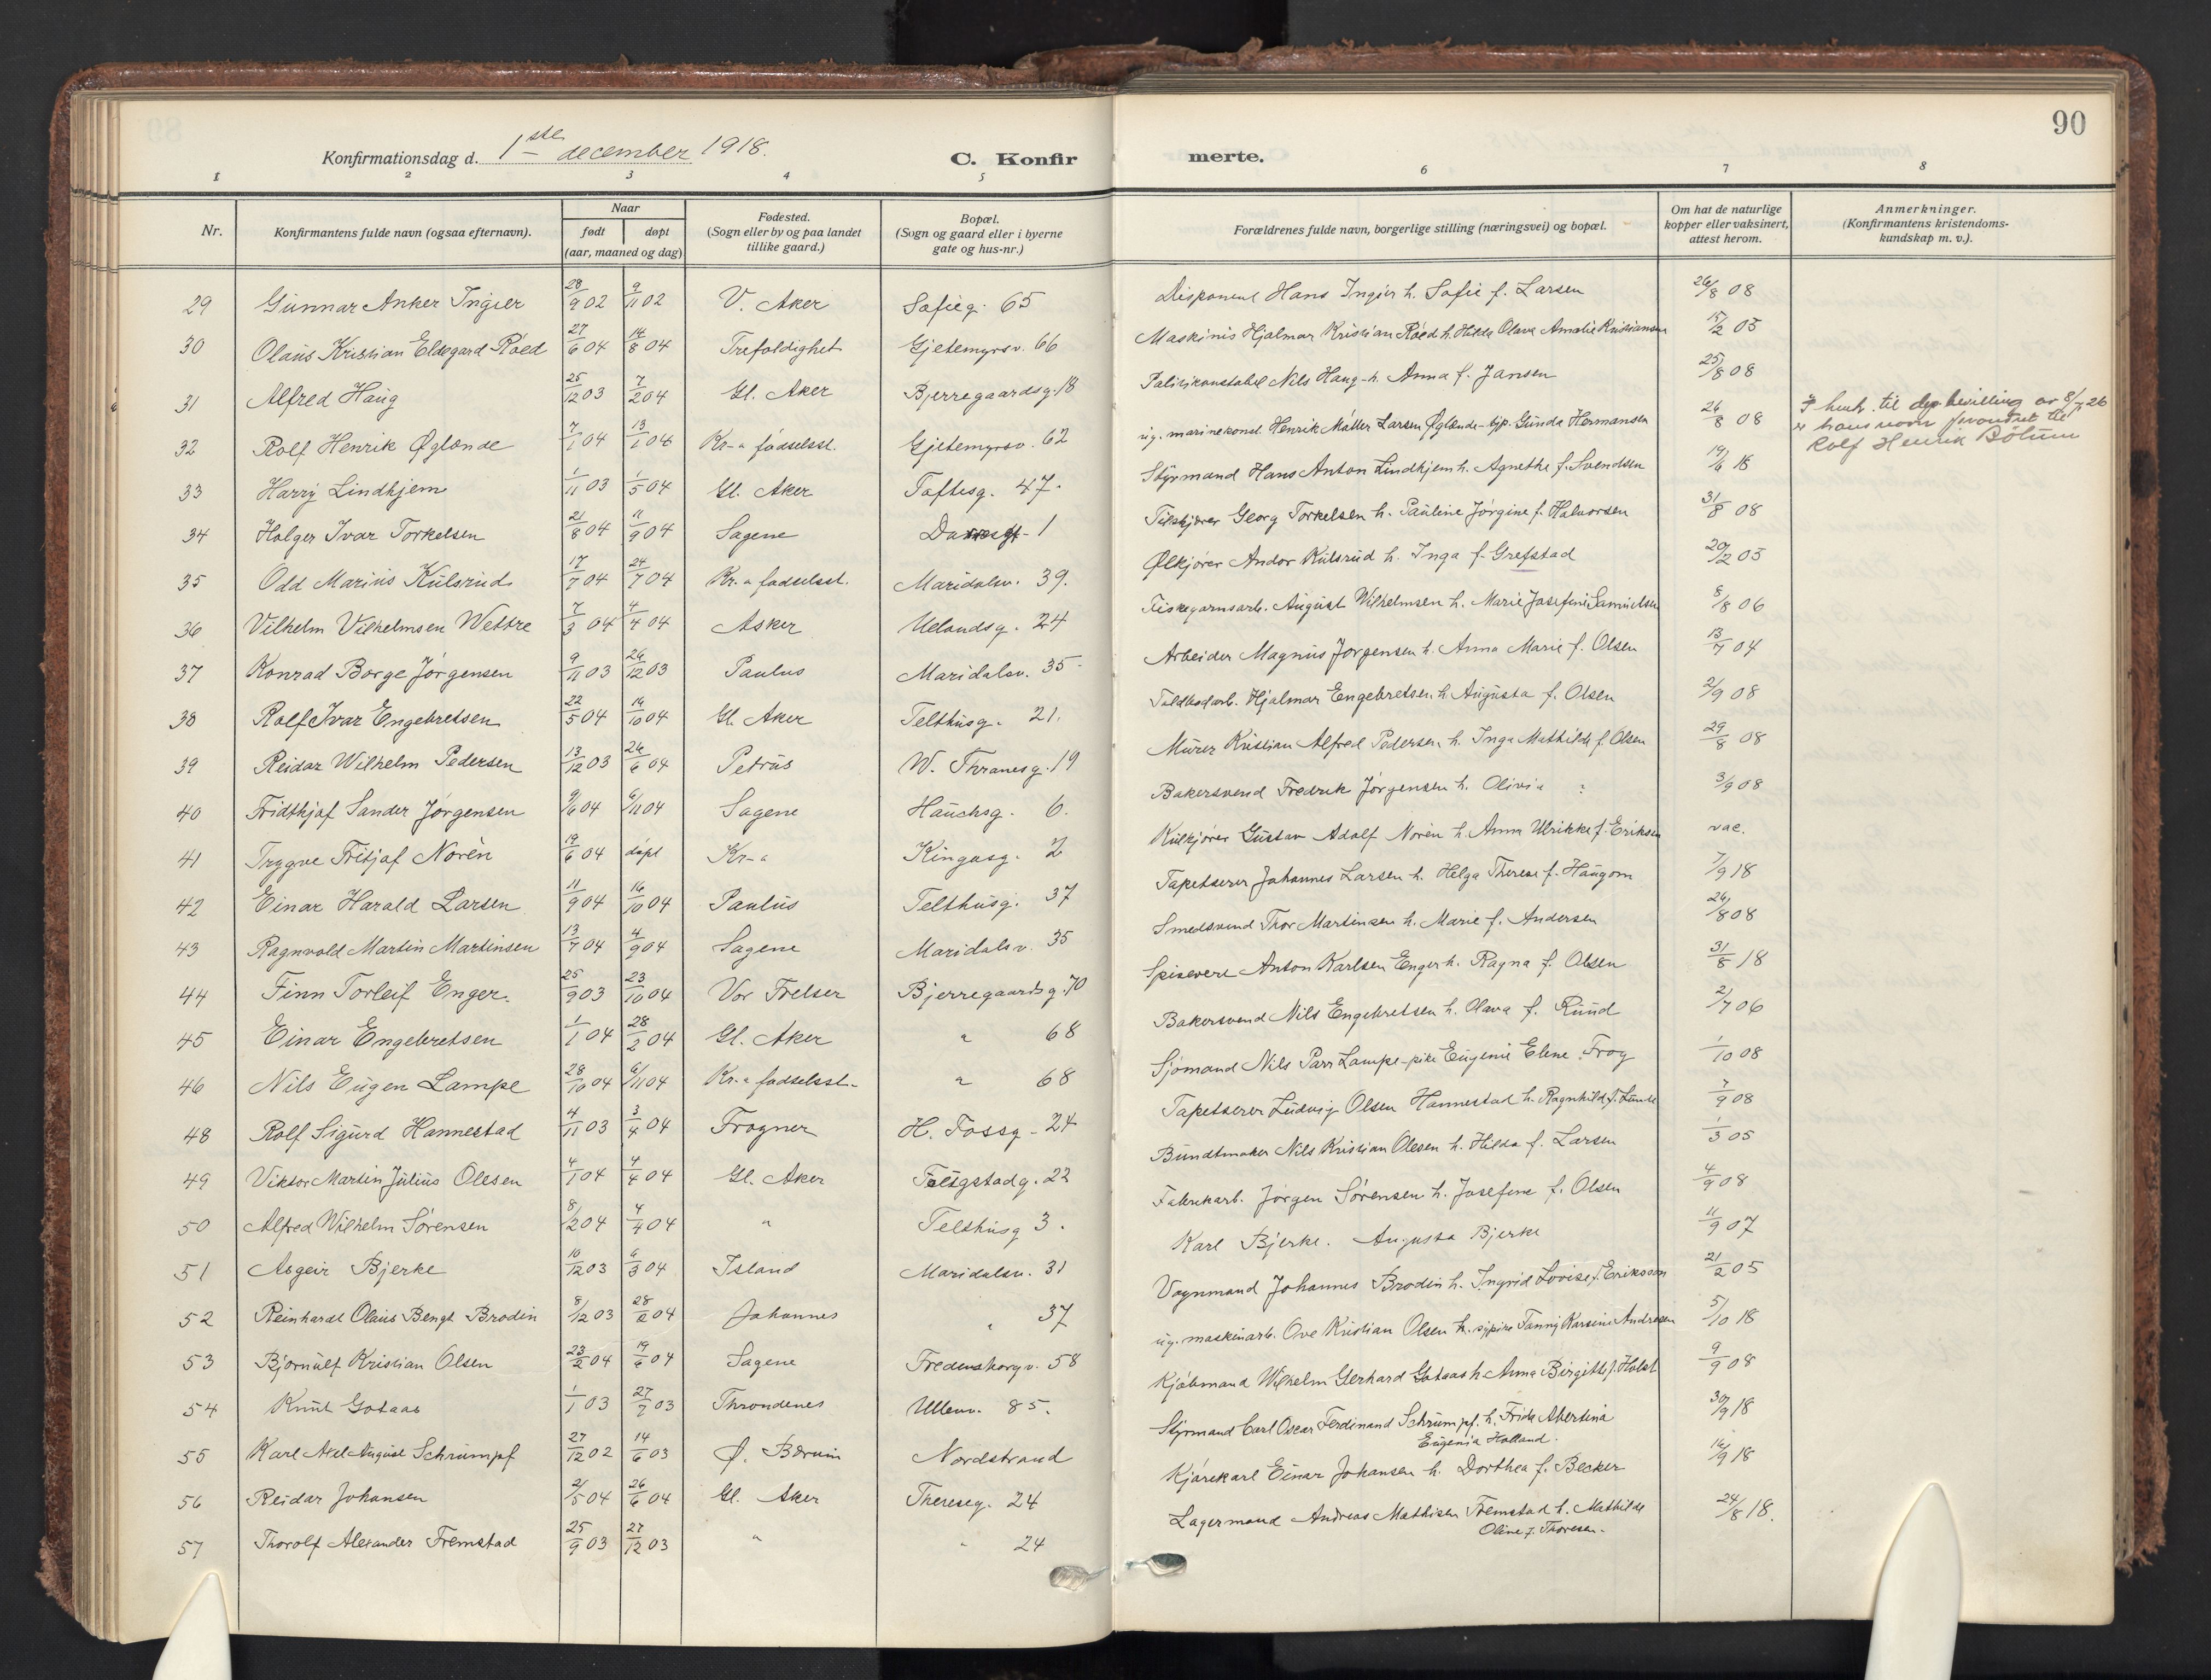 90
Konfirmationsdag d. 1ste december 1918.
C. Konfirmerte.
1 2 3 4 5 6 7 8
Nr.
Konfirmantens fulde navn (ogsaa efternavn).
Naar født døpt (aar, maaned og dag)
Fødested. (Sogn eller by og paa landet tillike gaard.)
Bopæl. (Sogn og gaard eller i byerne gate og hus-nr.)
Forældrenes fulde navn, borgerlige stilling (næringsvei) og bopæl.
Om hat de naturlige kopper eller vaksinert, attest herom.
Anmerkninger. (Konfirmantens kristendoms-kundskap m. v.).
29 Gunnar Anker Ingier 28/9 02 9/11 02 V. Aker Sofieg. 65 Disponent Hans Ingier h. Sofie f. Larsen 26/8 08
30 Olaus Kristian Eldegard Røed 27/6 04 14/8 04 Trefoldighet Gjetemyrsv. 66 Maskinis Hjalmar Kristian Røed h. Hilda Olava Amalie Kristiansen 15/2 05
31 Alfred Haug 25/12 03 7/2 04 Gl. Aker Bjerregaardsg. 18 Politikonstabel Nils Haug h. Anna f. Jansen 25/8 08
32 Rolf Henrik Øglænde 7/1 04 13/1 04 Kr-a fødselsst. Gjetemyrsv. 62 ug. marinekonst Henrik Møller Larsen Øglænde - Gunda Hermansen 26/8 08 I henh. til bevilling av 8/7 26 er hans navn forandret til Rolf Henrik Bölum
33 Harry Lindhjem 1/11 03 1/5 04 Gl. Aker Toftesg. 47. Styrmand Hans Anton Lindhjem h. Agnethe f. Svendsen 19/6 18
34 Holger Ivar Torkelsen 21/8 04 11/9 04 Sagene 1 Georg Torkelsen h. Pauline Jørgine f. Halvorsen 31/8 08
35 Odd Marius Kulsrud 17/7 04 24/7 04 Kr.a fødselsst. Maridalsv. 39. Ølkjører Andor Kulsrud h. Inga f. Grefstad 20/2 05
36 Vilhelm Vilhelmsen Wettre 7/3 04 4/4 04 Asker Uelandsg. 24 Fiskegarnsarb. August Wilhelmsen h. Marie Josefine Samuelsen 8/8 06
37 Konrad Borge Jørgensen 9/11 03 26/12 03 Paulus Maridalsv. 35. Arbeider Magnus Jørgensen h. Anna Marie f. Olsen 13/7 04
38 Rolf Ivar Engebretsen 22/5 04 14/10 04 Gl. Aker Telthusg. 21. Toldbodarb. Hjalmar Engebretsen h. Augusta f. Olsen 2/9 08
39 Reidar Wilhelm Pedersen 13/12 03 26/6 04 Petrus W. Thranesg. 19 Murer Kristian Alfred Pedersen h. Inga Mathilde f. Olsen 29/8 08
40 Fridthjof Sander Jørgensen 9/6 04 6/11 04 Sagene Hauchsg. 6. Bakersvend Fredrik Jørgensen h. Olivia : 3/9 08
41 Trygve Fritjof Norèn 19/6 04 døpt Kr-a Kingosg. 2 Kulkjører Gustav Adolf Norèn h. Anna Ulrikke f. Eriksen vac.
42 Einar Harald Larsen 11/9 04 16/10 04 Paulus Telthusg. 37 Tapetserer Johannes Larsen h. Helga Therese f. Haugom 7/9 18
43 Ragnvald Martin Martinsen 13/7 04 4/9 04 Sagene Maridalsv. 35 Smedsvend Thor Martinsen h. Marie f. Andersen 26/8 08
44 Finn Torleif Enger. 25/9 03 23/10 04 Vor Frelser Bjerregaardsg. 70 Spisevert Anton Karlsen Enger h. Ragna f. Olsen 31/8 18
45 Einar Engebretsen 1/1 04 28/2 04 Gl. Aker " 68 Bakersvend Nils Engebretsen h. Olava f. Ruud 2/7 06
46 Nils Eugen Lampe 28/10 04 6/11 04 Kr.a fødselsst. " 68 Sjømand Nils Parr Lampe - pike Eugenie Elene Frog 1/10 08
48 Rolf Sigurd Hannestad 4/11 03 3/4 04 Frogner H. Fossg. 24 Tapetserer Ludvig Olsen Hannestad h. Ragnhild f. Lunde 7/9 08
49 Viktor Martin Julius Olesen 4/1 04 4/4 04 Gl. Aker Falsgstadg. 22 Bundtmaker Nils Kristian Olesen h. Hilda f. Larsen 1/3 05
50 Alfred Wilhelm Sørensen 8/2 04 4/4 04 " Telthusg 3. Fabrikarb. Jørgen Sørensen h. Josefine f. Olsen 4/9 08
51 Asgeir Bjerke 10/12 03 6/3 04 Island Maridalsv. 31 Karl Bjerke. Augusta Bjerke 11/9 07
52 Reinhardt Olaus Bengt Brodin 8/12 03 28/2 04 Johannes " 37 Vognmand Johannes Brodin h. Ingrid Lovise f. Eriksson 21/2 05
53 Bjørnulf Kristian Olsen 23/2 04 19/6 04 Sagene Fredensborgv. 58 ug. maskinarb. Ove Kristian Olsen h. sypike Fanny Karsine Andresen 5/10 18
54 Knut Gotaas 1/1 03 27/7 03 Throndenes Ullenv. 85. Kjøbmand Wilhelm Gerhard Gotaas h. Anna Birgitte f. Holst 9/9 08
55 Karl Axel August Schrumpf 27/12 02 14/6 03 Ø. Bærum Nordstrand Styrmand Carl Oscar Ferdinand Schrumpf. h. Frida Albertina Eugenia Holland. 30/9 18
56 Reidar Johansen 2/5 04 26/6 04 Gl. Aker Thereseg. 24 Kjørekarl Einar Johansen h. Dorthea f. Becker 16/9 18
57 Thorolf Alexander Fremstad 25/9 03 27/12 03 " " 24 Lagermand Andreas Mathisen Fremstad h. Mathilde Oline f. Thoresen. 24/8 18.